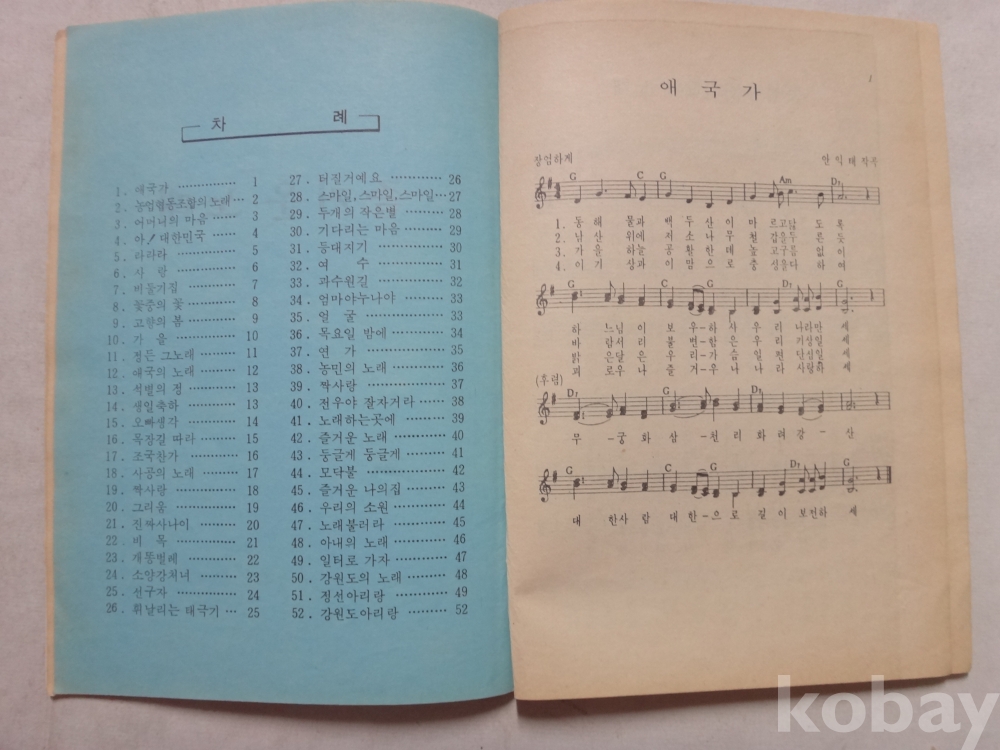 차 례
1. 애국가 ············ 1
2. 농업협동조합의 노래 ·· 2
3. 어머니의 마음 ······ 3
4. 아! 대한민국 ······· 4
5. 라라라 ············ 5
6. 사 랑 ············ 6
7. 비둘기집 ·········· 7
8. 꽃중의 꽃 ········· 8
9. 고향의 봄 ········· 9
10. 가 을 ··········· 10
11. 정든 그노래 ······· 11
12. 애국의 노래 ······· 12
13. 석별의 정 ········ 13
14. 생일축하 ········· 13
15. 오빠생각 ········· 14
16. 목장길 따라 ······· 15
17. 조국찬가 ········· 16
18. 사공의 노래 ······· 17
19. 짝사랑 ··········· 18
20. 그리움 ··········· 19
21. 진짜사나이 ······· 20
22. 비 목 ··········· 21
23. 개똥벌레 ········· 22
24. 소양강처녀 ······· 23
25. 선구자 ··········· 24
26. 휘날리는 태극기 ··· 25
27. 터질거예요 ······· 26
28. 스마일, 스마일, 스마일 ··· 27
29. 두개의 작은별 ····· 28
30. 기다리는 마음 ····· 29
31. 등대지기 ········· 30
32. 여 수 ··········· 31
33. 과수원길 ········· 32
34. 엄마야누나야 ····· 33
35. 얼 굴 ··········· 33
36. 목요일 밤에 ······· 34
37. 연 가 ··········· 35
38. 농민의 노래 ······· 36
39. 짝사랑 ··········· 37
40. 전우야 잘자거라 ··· 38
41. 노래하는곳에 ····· 39
42. 즐거운 노래 ······· 40
43. 둥글게 둥글게 ····· 41
44. 모닥불 ··········· 42
45. 즐거운 나의집 ····· 43
46. 우리의 소원 ······· 44
47. 노래불러라 ······· 45
48. 아내의 노래 ······· 46
49. 일터로 가자 ······· 47
50. 강원도의 노래 ····· 48
51. 정선아리랑 ······· 49
52. 강원도아리랑 ····· 52
1
애 국 가
장엄하게
안 익 태 작곡
G C G Am D7
1. 동 해 물과 백 두 산 이 마 르 고 닳 도 록
2. 남 산 위에 저 소 나 무 철 갑을 두 른 듯
3. 가 을 하늘 공 활 한 데 높 고 구름 없 이
4. 이 기 상과 이 맘 으 로 충 성을 다 하 여
G C G D7 G
하 느님 이 보 우-하 사 우 리 나라만 세
바 람서 리 불 변-함 은 우 리 기상일 세
밝 은달 은 우 리-가 슴 일 편 단심일 세
괴 로우 나 즐 거-우 나 나 라 사랑하 세
(후렴)
D7 G D7 G
무 -궁 화 삼 -천 리 화 려 강 - 산
G C G D7 G
대 한사 람 대 한-으 로 길 이 보전하 세
kobay